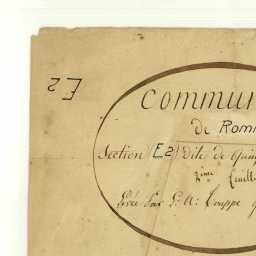 E2
Commun
de Rom
Section E2 dite de Quin
2ème Feuille
Levée Par P. A. Couppe